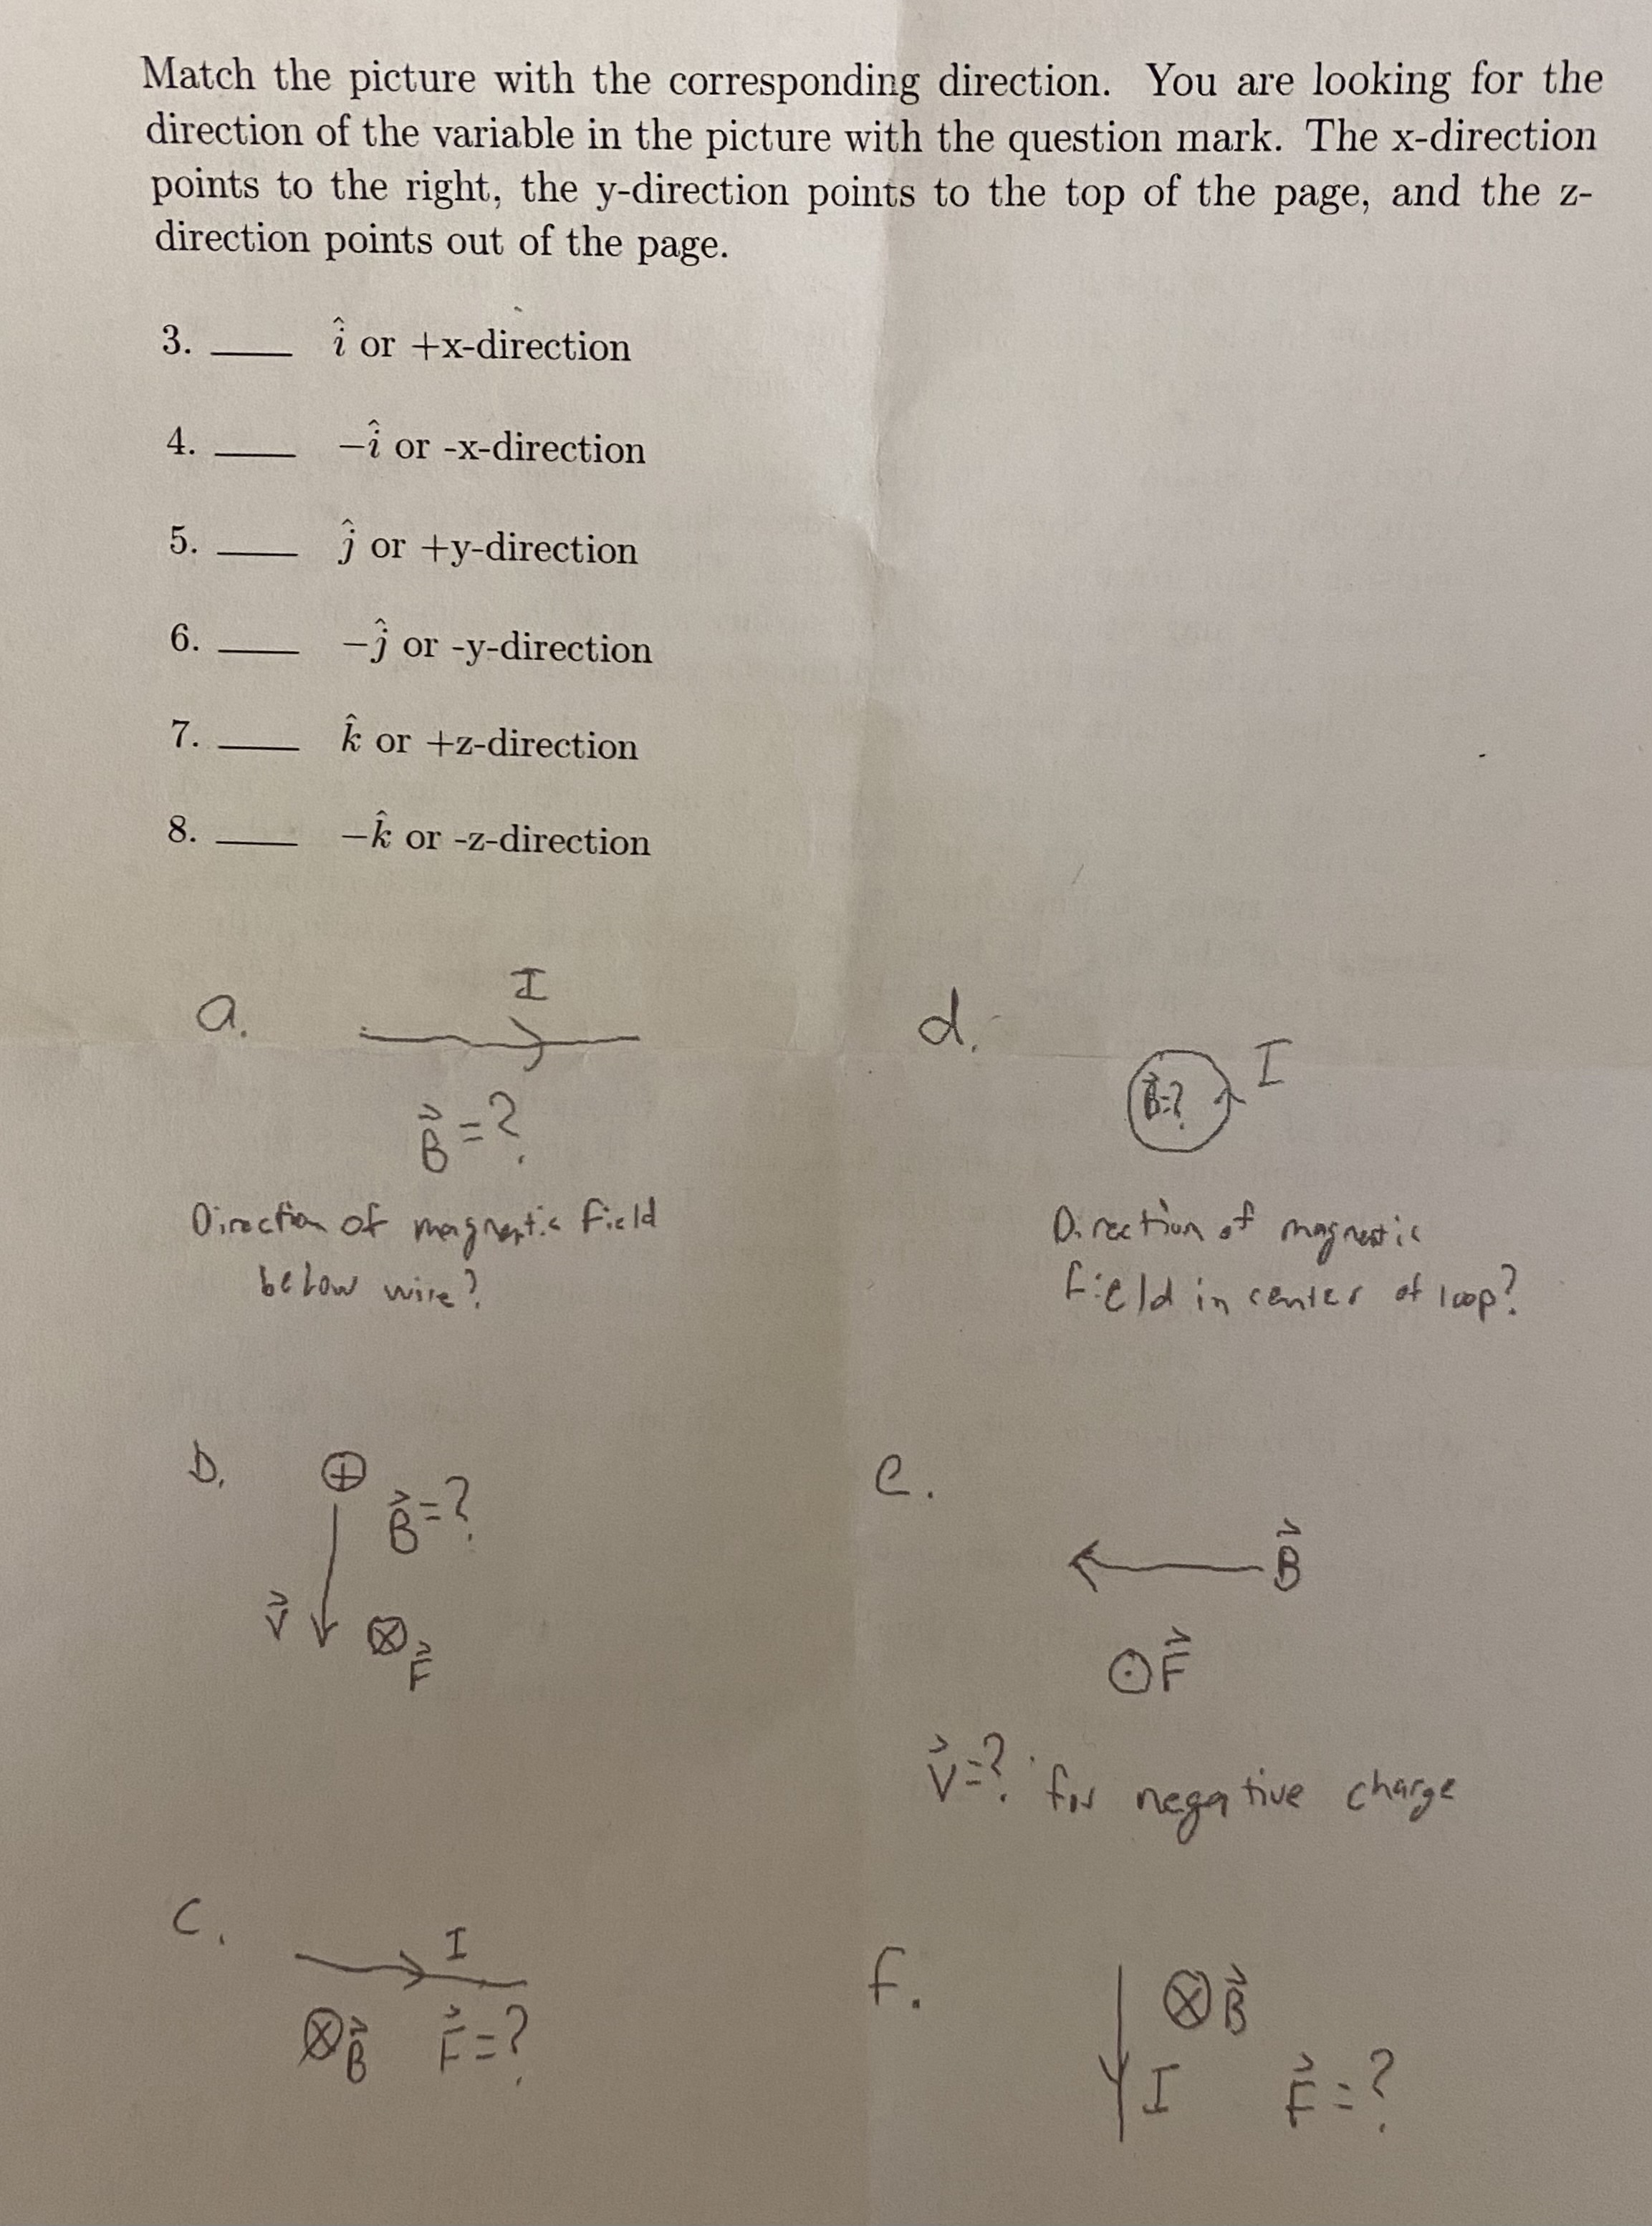 Match the picture with the corresponding direction. You are looking for the
direction of the variable in the picture with the question mark. The x-direction
points to the right, the y-direction points to the top of the page, and the z-
direction points out of the page.
3. ____ î or +x-direction
4. ____ −î or -x-direction
5. ____ ĵ or +y-direction
6. ____ −ĵ or -y-direction
7. ____ k̂ or +z-direction
8. ____ −k̂ or -z-direction
a.
I
B⃗ = ?
Direction of magnetic field
below wire?
d.
I
B⃗=?
Direction of magnetic
field in center of loop?
b.
⊕
B⃗=?
V⃗
⊗ F⃗
e.
B⃗
⊙ F⃗
V⃗=? for negative charge
c.
I
⊗ B⃗ F⃗=?
f.
⊗ B⃗
I F⃗=?